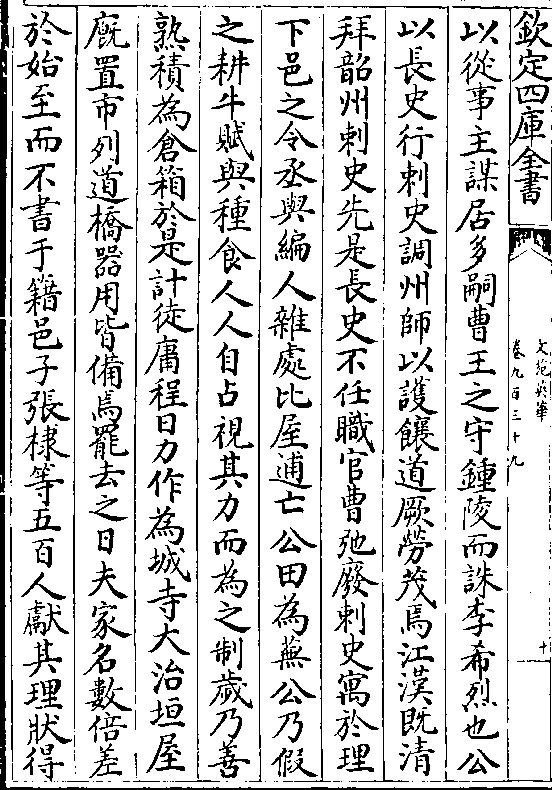 欽定四庫全書
文苑英華
卷九百三十九
十
以從事主謀居多嗣曹王之守鍾陵而誅李希烈也公
以長史行刺史調州師以護饟道厥勞茂焉江漢既清
拜韶州刺史先是長史不任職官曹弛廢刺史寓於理
下邑之令丞與編人雜處比屋逋亡公田為蕪公乃假
之耕牛賦與種食人人自占視其力而為之制歲乃善
熟積為倉箱於是計徒庸程日力作為城寺大治垣屋
廐置市列道橋器用皆備焉罷去之日夫家名數倍差
於始至而不書于籍邑子張棣等五百人獻其理狀得